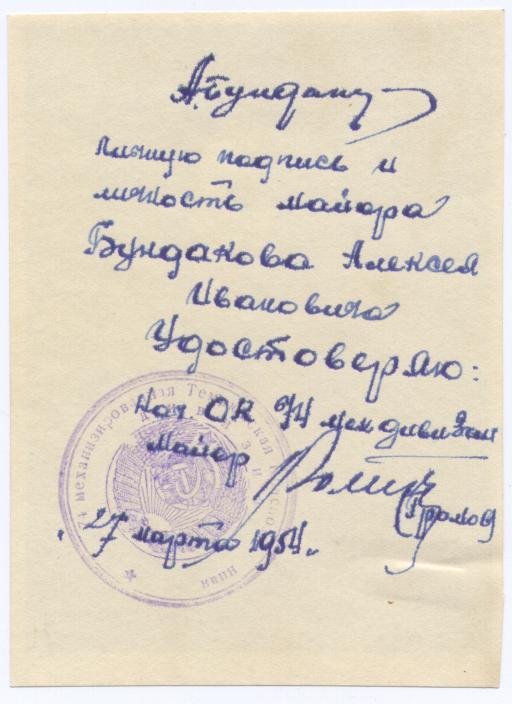 А.Бундак
личную подпись и
личность майора
Бундакова Алексея
Ивановича
Удостоверяю:
Нач ОК 74 мех дивизии
майор
(Громов)
27 марта 1954 г.
74 механизированная